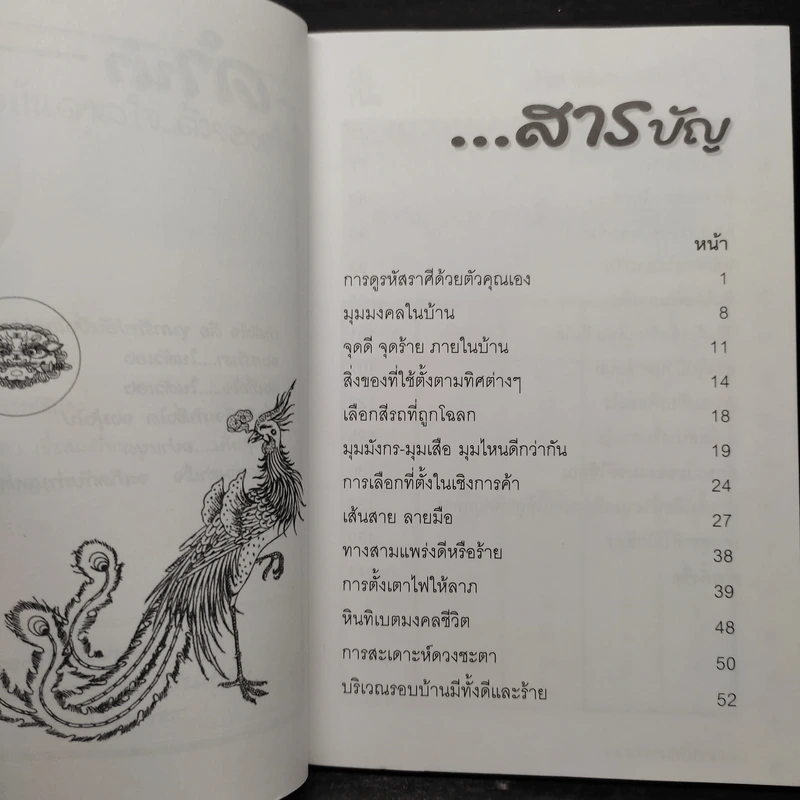 ...สารบัญ
หน้า
การดูรหัสราศีด้วยตัวคุณเอง 1
มุมมงคลในบ้าน 8
จุดดี จุดร้าย ภายในบ้าน 11
สิ่งของที่ใช้ตั้งตามทิศต่างๆ 14
เลือกสีรถที่ถูกโฉลก 18
มุมมังกร-มุมเสือ มุมไหนดีกว่ากัน 19
การเลือกที่ตั้งในเชิงการค้า 24
เส้นสาย ลายมือ 27
ทางสามแพร่งดีหรือร้าย 38
การตั้งเตาไฟให้ลาภ 39
หินทิเบตมงคลชีวิต 48
การสะเดาะห์ดวงชะตา 50
บริเวณรอบบ้านมีทั้งดีและร้าย 52